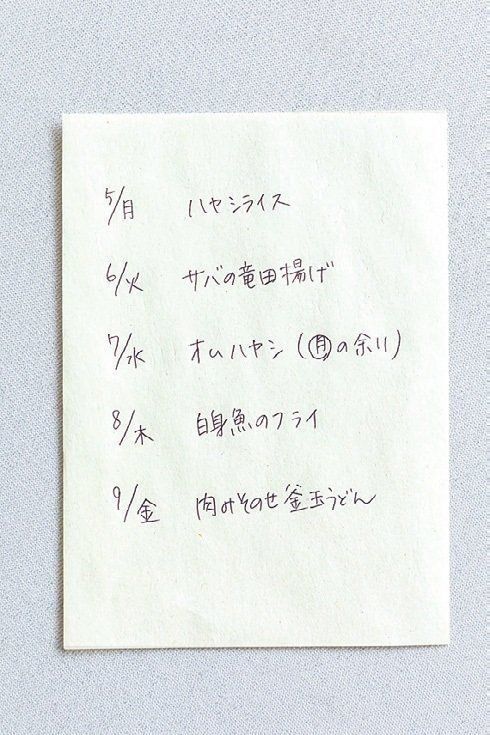 5/月 ハヤシライス
6/火 サバの竜田揚げ
7/水 オムハヤシ(㊊の余り)
8/木 白身魚のフライ
9/金 肉みそのせ釜玉うどん